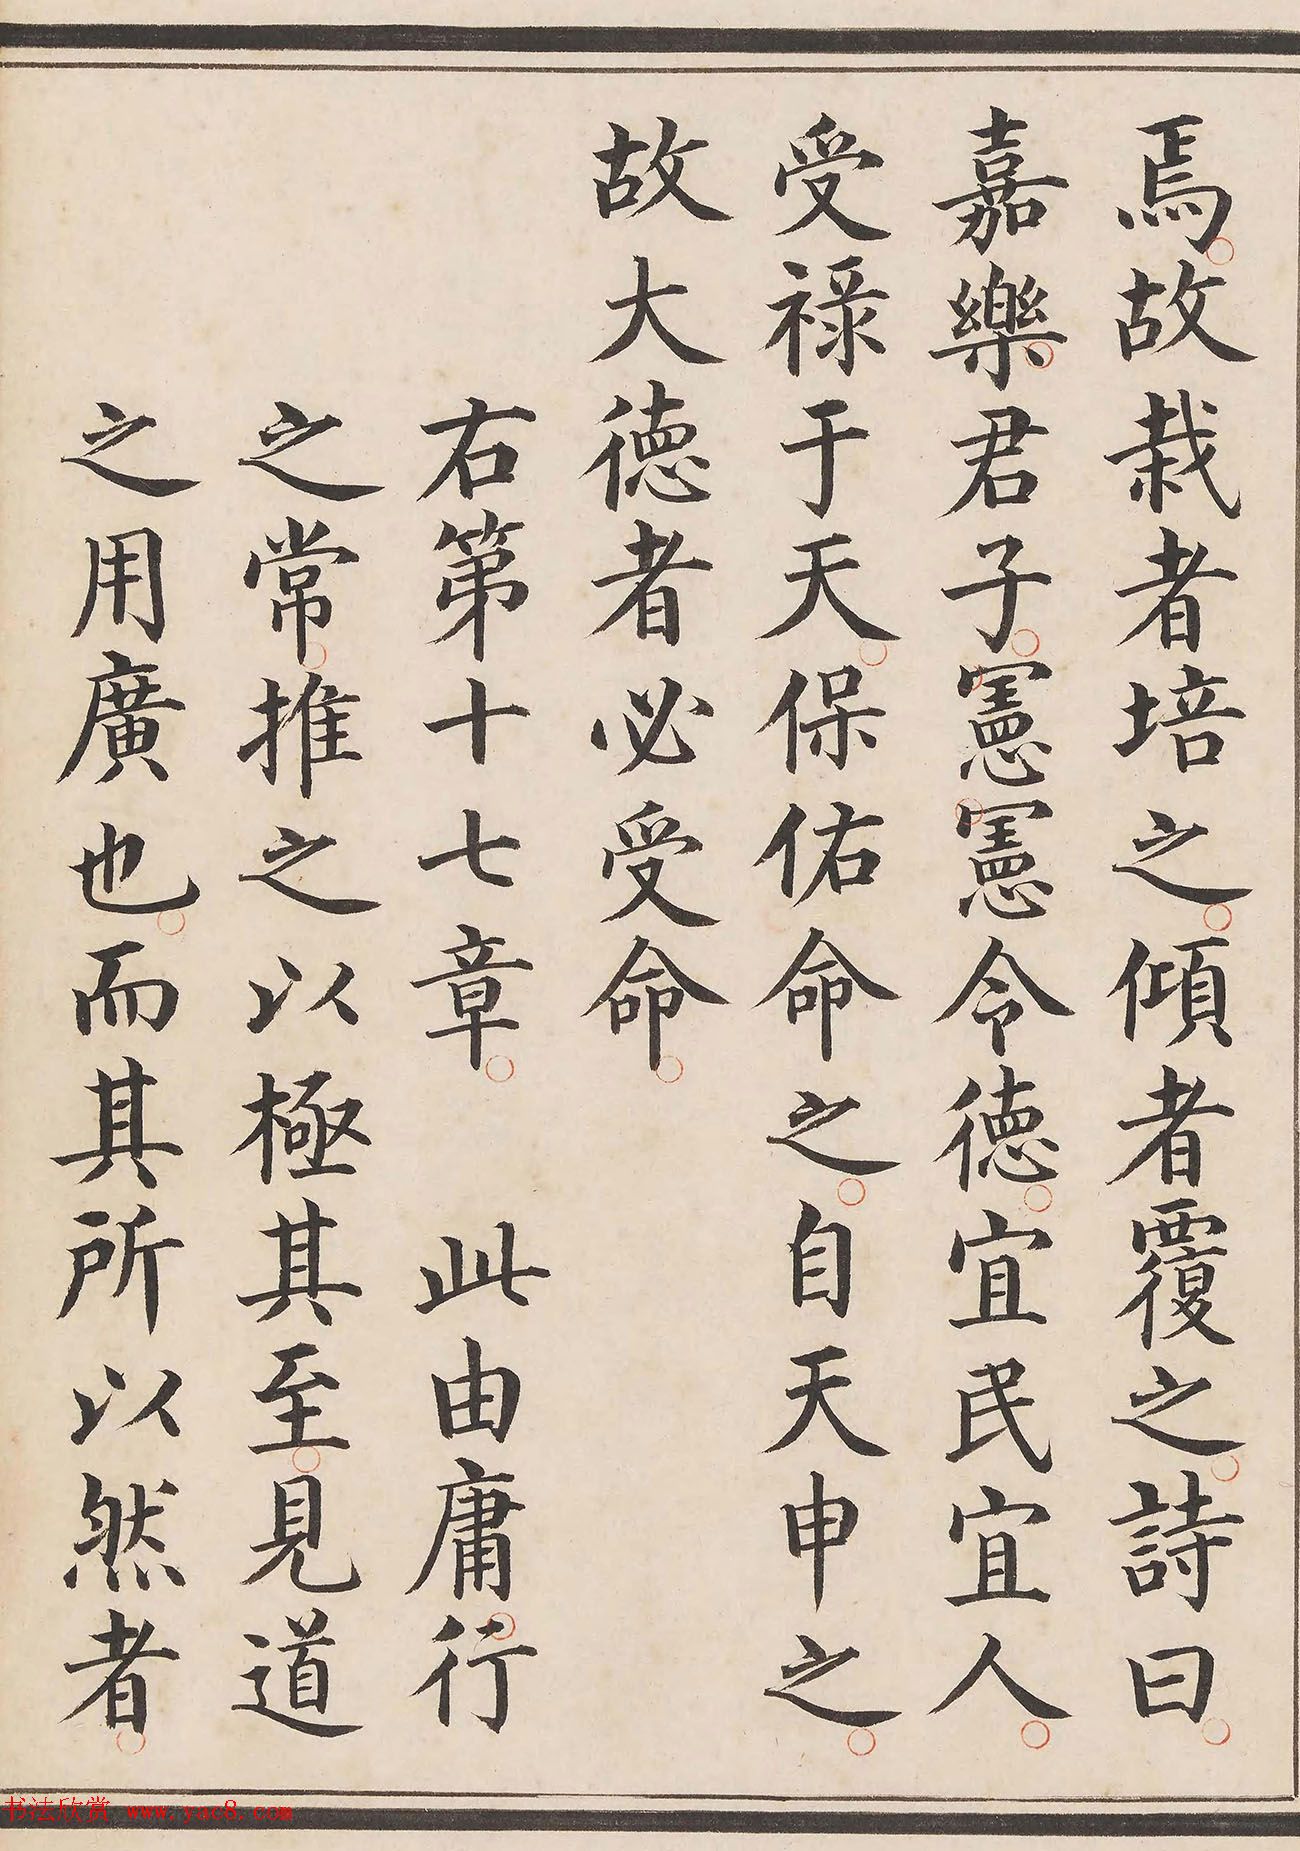 焉故栽者培之傾者覆之詩曰
嘉樂君子憲憲令德宜民宜人
受祿于天保佑命之自天申之
故大德者必受命
右第十七章 此由庸行
之常推之以極其至見道
之用廣也而其所以然者
书法欣赏 www.yac8.com